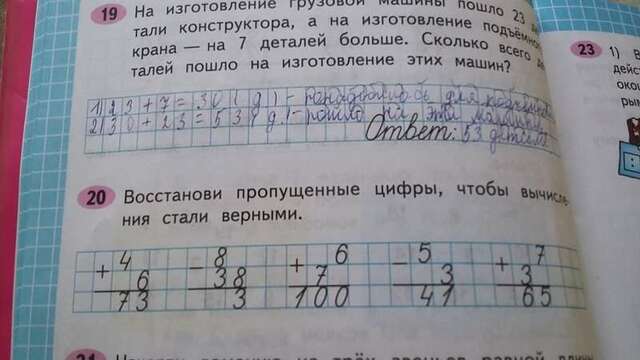 19 На изготовление грузовой машины пошло 23
тали конструктора, а на изготовление подъём
крана — на 7 деталей больше. Сколько всего
талей пошло на изготовление этих машин?
1) 23+7=30 (д.) -
2) 30+23=53 (д.) - пошло на эти
Ответ: 53 детали
20 Восстанови пропущенные цифры, чтобы вычисле
ния стали верными.
4 8 6 5 7
+ 6 38 + 7 - 3 + 3
73 3 100 41 65
21
23 1)
дейс
око
рым